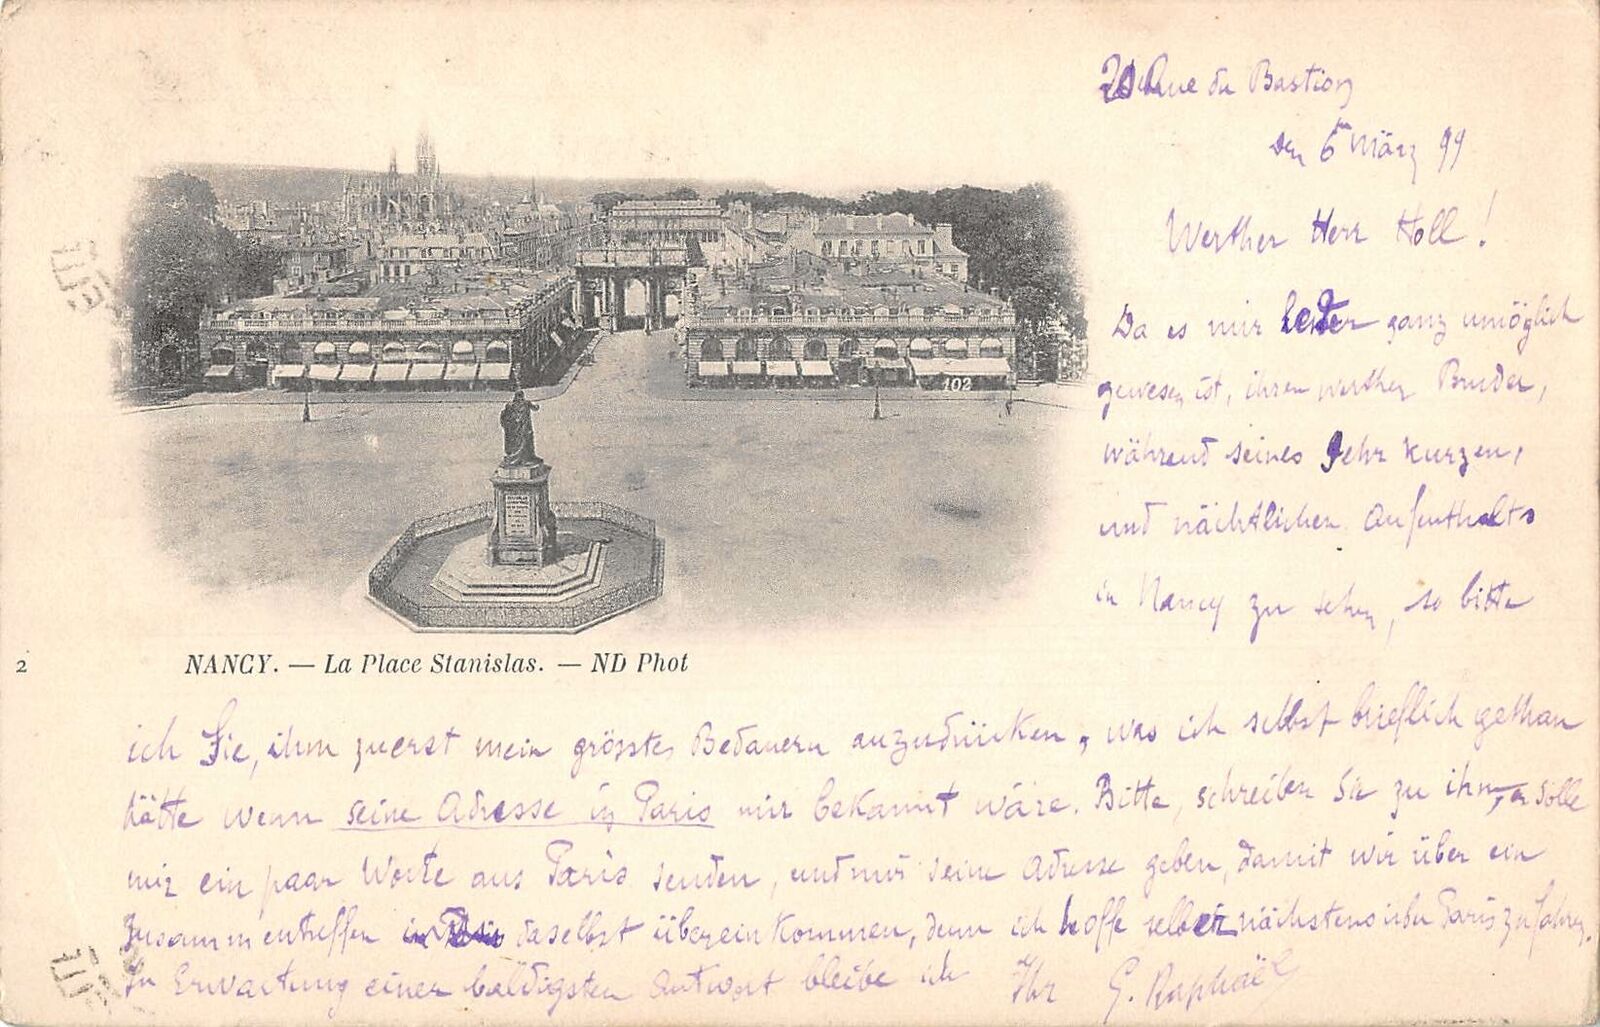 20 Rue du Bastion
den 6ten März 99
Werther Herr Holl!
Da es mir leider ganz unmöglich
gewesen ist, ihren werther Bruder,
während seines sehr kurzen,
und nächtlichen Aufenthalts
in Nancy zu sehen, so bitte
102
2
NANCY. — La Place Stanislas. — ND Phot
ich Sie, ihm zuerst mein grösstes Bedauern auzudrücken, was ich selbst brieflich gethan
hätte wenn seine Adresse in Paris mir bekannt wäre. Bitte, schreiben Sie zu ihm, er solle
mir ein paar Worte aus Paris senden, und mir seine Adresse geben, damit wir über ein
Zusammentreffen daselbst übereinkommen, denn ich hoffe selber nächstens über Paris zu fahren.
In Erwartung einer baldigsten Antwort bleibe ich Ihr G. Raphaël